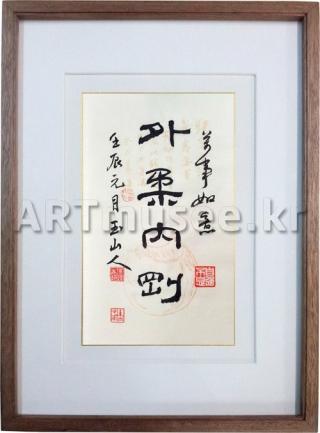 萬事如意
外柔內剛
壬辰元月玉山人
ARTmusee.kr